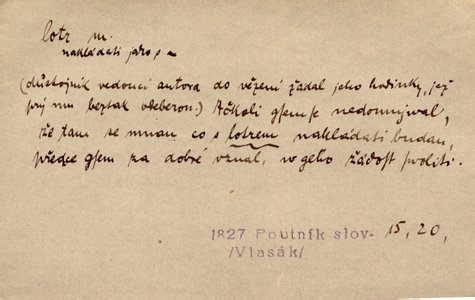 lotr m.
nakládati jako s ~
(důstojník vedoucí autora do vězení žádal jeho hodinky, jež
prý mu beztak odeberou.) Ačkoli gsem se nedomnjwal,
že tam se mnau co s lotrem nakládati budau,
předce gsem za dobré uznal, w geho žádost swoliti.
1827 Poutník slov. 15, 20,
/Vlasák/